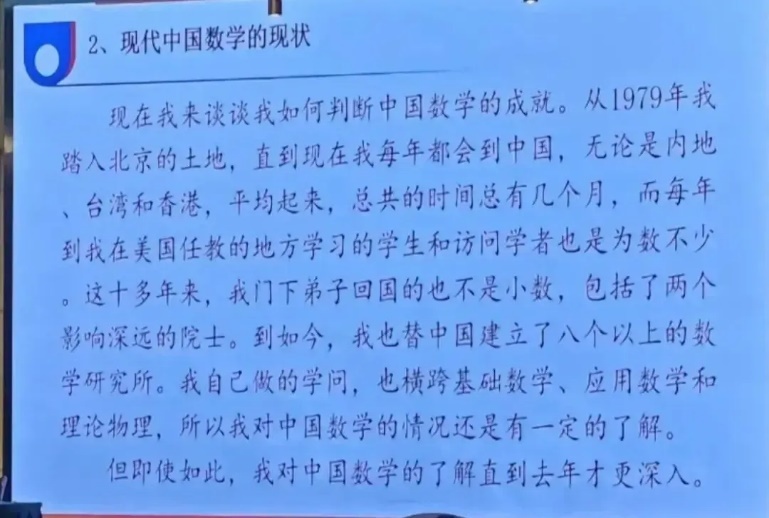 2、现代中国数学的现状
现在我来谈谈我如何判断中国数学的成就。从1979年我
踏入北京的土地，直到现在我每年都会到中国，无论是内地
、台湾和香港，平均起来，总共的时间总有几个月，而每年
到我在美国任教的地方学习的学生和访问学者也是为数不少
。这十多年来，我门下弟子回国的也不是小数，包括了两个
影响深远的院士。到如今，我也替中国建立了八个以上的数
学研究所。我自己做的学问，也横跨基础数学、应用数学和
理论物理，所以我对中国数学的情况还是有一定的了解。
但即使如此，我对中国数学的了解直到去年才更深入。